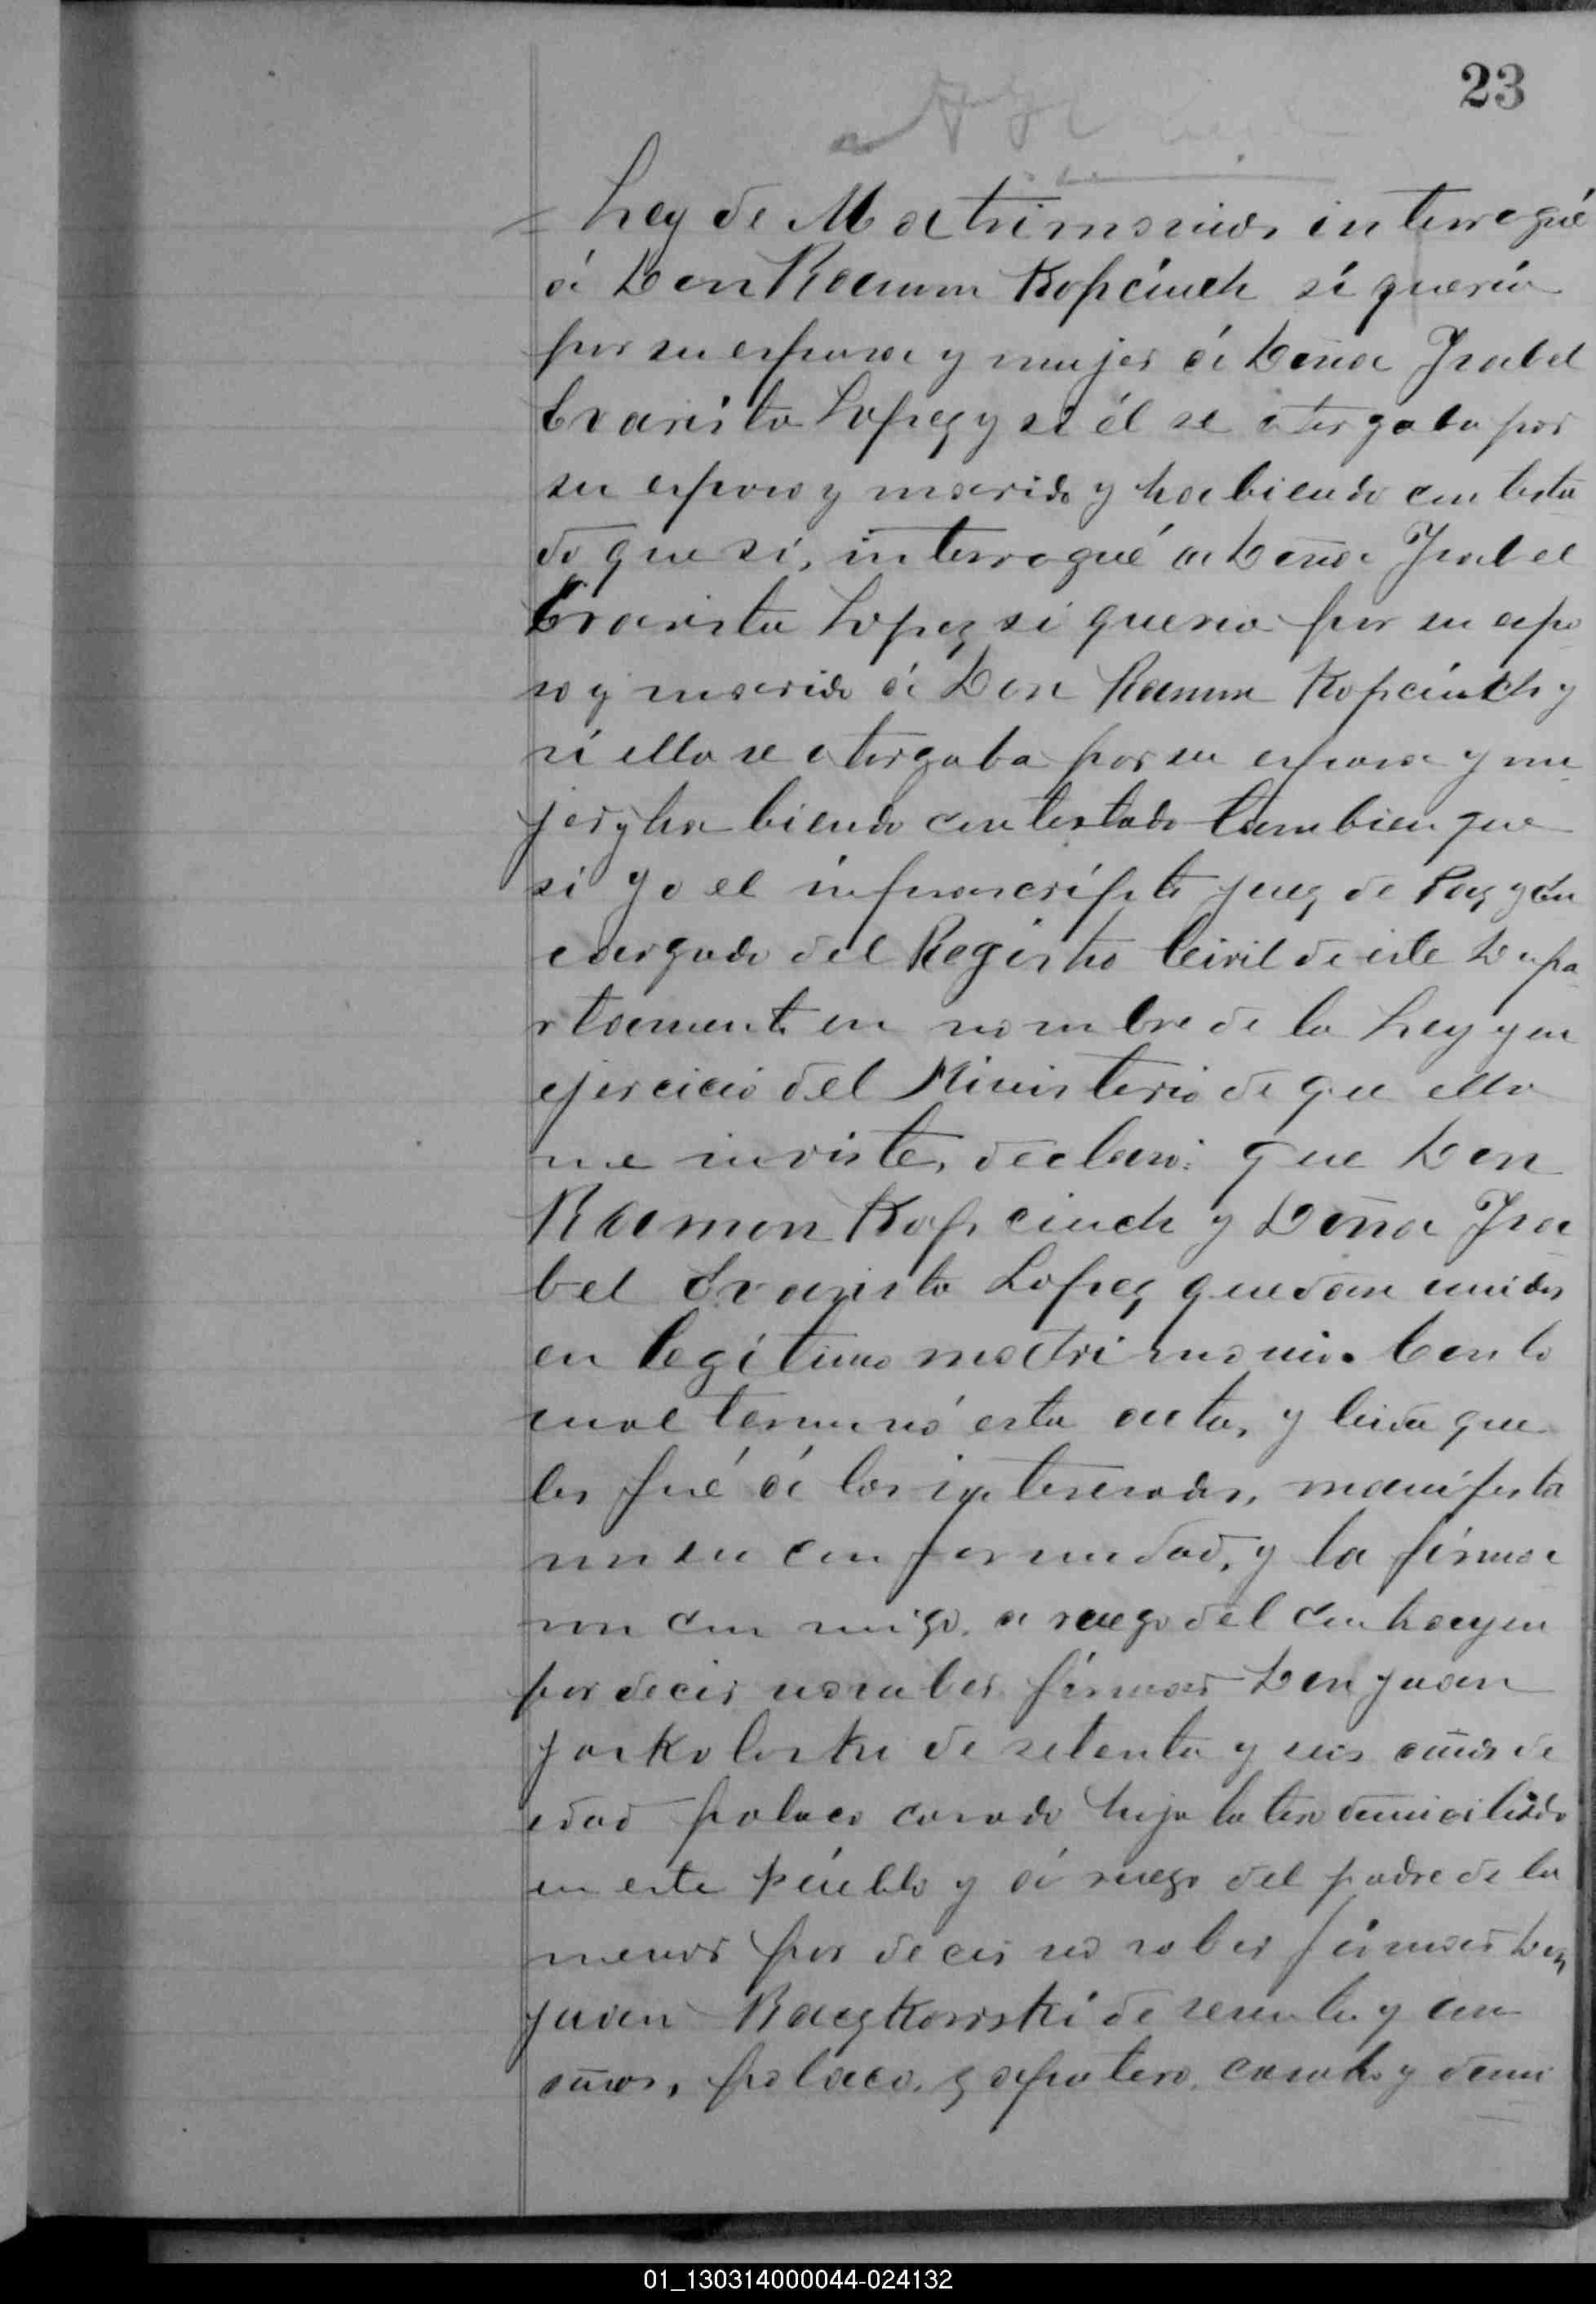 23
Ley de Matrimonio, interrogué
á Don Ramon Kopciuch si queria
por su esposa y mujer á Doña Isabel
Evarista Lopez y si él se otorgaba por
su esposo y marido y habiendo contesta
do que sí, interrogué a Doña Isabel
Evarista Lopez si queria por su espo
so y marido á Don Ramon Kopciuch y
si ella se otorgaba por su esposa y mu
jer y habiendo contestado tambien que
si yo el infrascripto juez de Paz y En
cargado del Registro Civil de este Depa
rtamento en nombre de la Ley y en
ejercicio del Ministerio de que ella
me inviste, declaro: que Don
Ramon Kopciuch y Doña Isa
bel Evarista Lopez quedan unidos
en legítimo matrimonio. Con lo
cual terminó esta acta, y leida que
les fué á los interesados, manifesta
ron su conformidad, y la firma
ron con migo, a ruego del contrayen
por decir no saber firmar Don Juan
de setenta y seis años de
edad polaco casado hojalatero domiciliado
en este pueblo y á ruego del padre de la
menor por decir no saber firmar Don
Juan Raczkowski de sesenta y un
años, polaco, zapatero, casado y domi
01_130314000044-024132